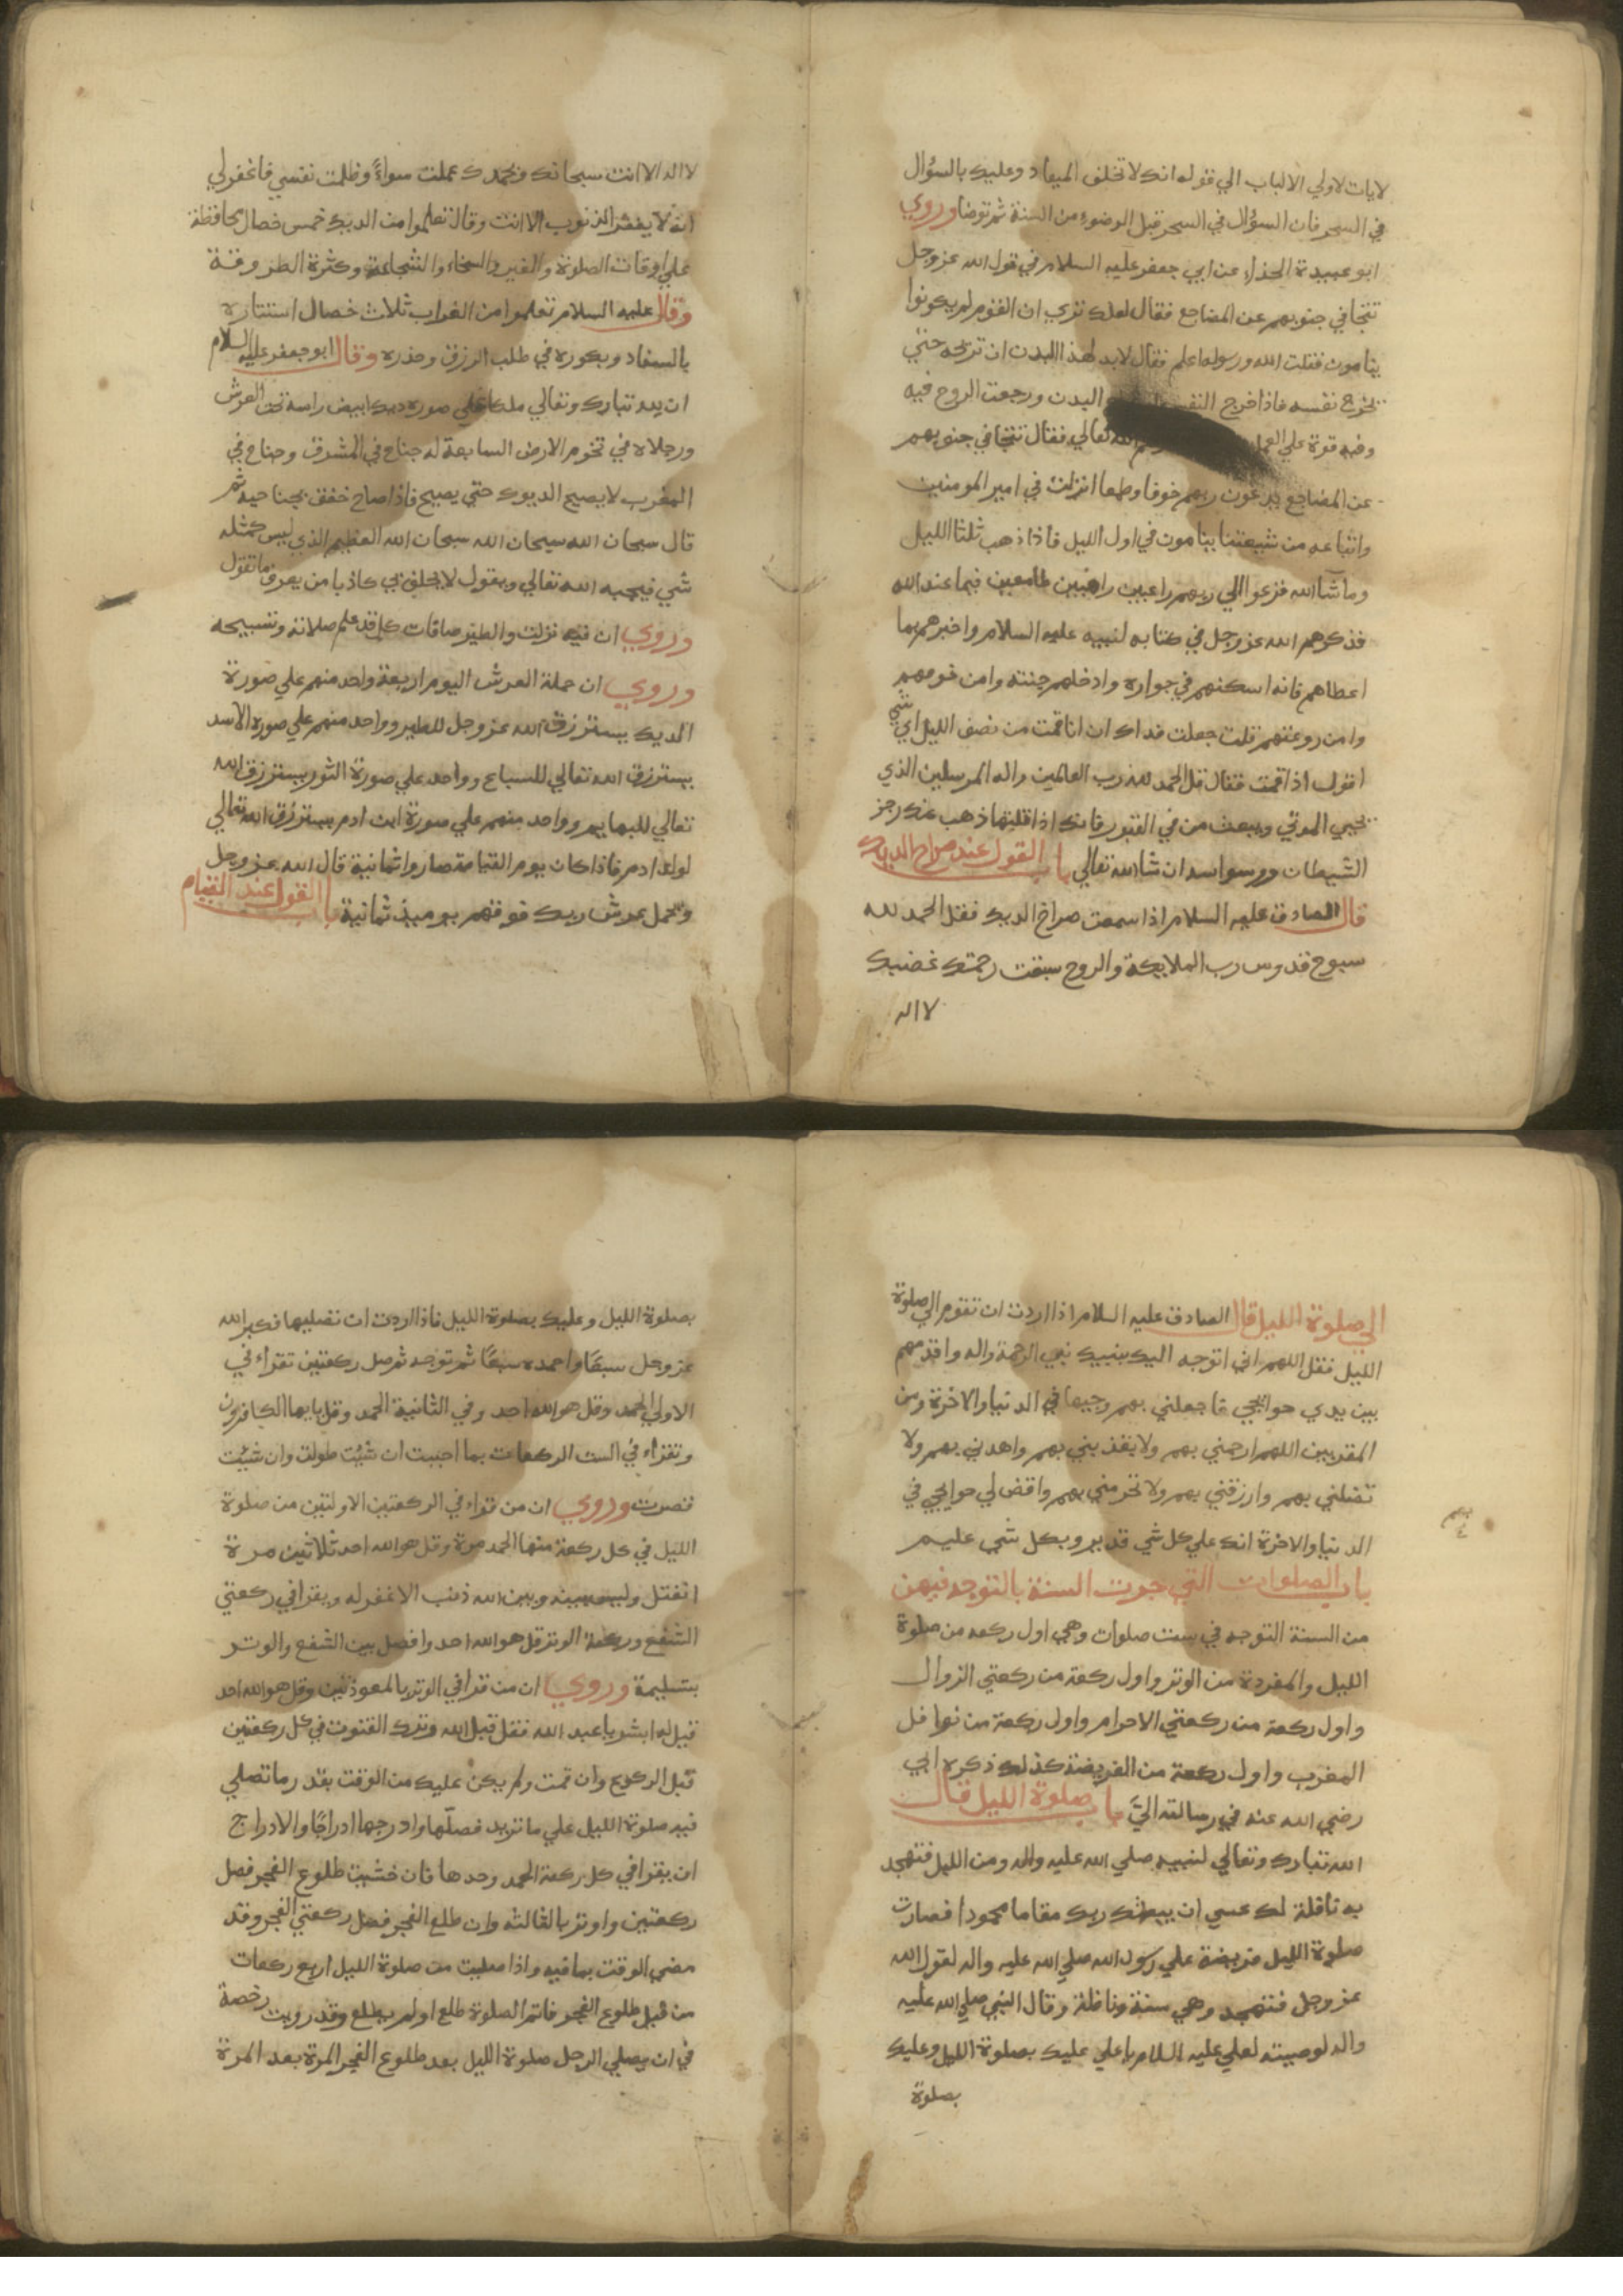 لايات لاولي الالباب الي قوله انك لا تخلف الميعاد وعليك بالسؤال
في السحر فان السؤال في السحر قبل الوضوء من السنة ثم توضا وروي
ابو عبيدة الحذاء عن ابي جعفر عليه السلام في قول الله عز وجل
تتجافي جنوبهم عن المضاجع فقال لعلك تري ان القوم لم يكونوا
ينامون فقلت الله ورسوله اعلم فقال لابد لهذا البدن ان تريحه حتي
يخرج نفسه فاذا خرج النفس البدن ورجعت الروح فيه
وفيه قوة علي العمل الله تعالي فقال تتجافي جنوبهم
عن المضاجع يدعون ربهم خوفا وطمعا انزلت في امير المومنين
واتباعه من شيعتنا ينامون في اول الليل فاذا ذهب ثلثا الليل
وما شآالله فزعوا الي ربهم راغبين راهبين طامعين فيما عند الله
فذكرهم الله عز وجل في كتابه لنبيه عليه السلام واخبرهم بما
اعطاهم فانه اسكنهم في جواره وادخلهم جنته وامن خوفهم
وامن روعتهم قلت جعلت فداك ان انا قمت من نصف الليل اي شي
اقول اذا قمت فقال قل الحمد لله رب العالمين واله المرسلين الذي
يحيي الموتي ويبعث من في القبور فانك اذا قلتها ذهب عنك رجز
الشيطان ووسواسه ان شا الله تعالي باب القول عند صراخ الديك
قال الصادق عليه السلام اذا سمعت صراخ الديك فقل الحمد لله
سبوح قدوس رب الملايكة والروح سبقت رحمتك غضبك
لا اله
لا اله الا انت سبحانك وبحمدك عملت سواءً وظلمت نفسي فاغفر لي
انه لا يغفر الذنوب الا انت وقال تعلموا من الديك خمس خصال محافظة
علي اوقات الصلوة والغيرة والسخاء والشجاعة وكثرة الطروقة
وقال عليه السلام تعلموا من الغراب ثلاث خصال استتاره
بالسفاد وبكوره في طلب الرزق وحذره وقال ابو جعفر عليه السلام
ان لله تبارك وتعالي ملكا علي صورة ديك ابيض راسه تحت العرش
ورجلاه في تخوم الارض السابعة له جناح في المشرق وجناح في
المغرب لا يصيح الديوك حتي يصيح فاذا صاح خفق بجناحيه ثم
قال سبحان الله سبحان الله سبحان الله العظيم الذي ليس كمثله
شي فيجيبه الله تعالي ويقول لا يحلف بي كاذبا من يعرف ما تقول
وروي ان فيه نزلت والطير صافات كل قد علم صلاته وتسبيحه
وروي ان حملة العرش اليوم اربعة واحد منهم علي صورة
الديك يسترزق الله عز وجل للطير وواحد منهم علي صورة الاسد
يسترزق الله تعالي للسباع وواحد علي صورة الثور يسترزق الله
تعالي للبهايم وواحد منهم علي صورة ابن ادم يسترزق الله تعالي
لولد ادم فاذا كان يوم القيامة صاروا ثمانية قال الله عز وجل
ويحمل عرش ربك فوقهم يوميذ ثمانية باب القول عند القيام
الي صلوة الليل قال الصادق عليه السلام اذا اردت ان تقوم الي صلوة
الليل فقل اللهم اني اتوجه اليك بنبيك نبي الرحمة واله واقدمهم
بين يدي حوايجي فاجعلني بهم وجيها في الدنيا والاخرة ومن
المقربين اللهم ارحمني بهم ولا تعذبني بهم واهدني بهم ولا
تضلني بهم وارزقني بهم ولا تحرمني بهم واقض لي حوايجي في
الدنيا والاخرة انك علي كل شي قدير وبكل شي عليم
باب الصلوات التي جرت السنة بالتوجه فيهن
من السنة التوجه في ست صلوات وهي اول ركعه من صلوة
الليل والمفردة من الوتر واول ركعة من ركعتي الزوال
واول ركعة من ركعتي الاحرام واول ركعة من نوافل
المغرب واول ركعة من الفريضة كذلك ذكره ابي
رضي الله عنه في رسالته اليَّ باب صلوة الليل قال
الله تبارك وتعالي لنبيه صلي الله عليه واله ومن الليل فتهجد
به نافلة لك عسي ان يبعثك ربك مقاما محمودا فصارت
صلوة الليل فريضة علي رسول الله صلي الله عليه واله لقول الله
عز وجل فتهجد وهي سنة ونافلة وقال النبي صلي الله عليه
واله لوصيته لعلي عليه السلام يا علي عليك بصلوة الليل وعليك
بصلوة
بصلوة الليل وعليك بصلوة الليل فاذا اردت ان تصليها فكبر الله
عز وجل سبعًا واحمده سبعًا ثم توجه ثم صل ركعتين تقراء في
الاولي الحمد وقل هو الله احد وفي الثانية الحمد وقل يايها الكافرون
وتقراء في الست الركعات بما احببت ان شيت طولت وان شيت
قصرت وروي ان من قراء في الركعتين الاولتين من صلوة
الليل في كل ركعة منها الحمد مرة وقل هو الله احد ثلاثين مرة
انفتل وليس بينه وبين الله ذنب الا غفر له ويقرا في ركعتي
الشفع وركعة الوتر قل هو الله احد وافصل بين الشفع والوتر
بتسليمة وروي ان من قرا في الوتر بالمعوذتين وقل هو الله احد
قيل له ابشر يا عبد الله فقد قبل الله وترك القنوت في كل ركعتين
قبل الركوع وان قمت ولم يكن عليك من الوقت بقدر ما تصلي
فيه صلوة الليل علي ما تريد فصلّها وادرجها ادراجًا والادراج
ان يقرا في كل ركعة الحمد وحدها فان خشيت طلوع الفجر فصل
ركعتين واوتر بالثالثه وان طلع الفجر فصل ركعتي الفجر وقد
مضي الوقت بما فيه واذا صليت من صلوة الليل اربع ركعات
من قبل طلوع الفجر فاتم الصلوة طلع او لم يطلع وقد رويت رخصة
في ان يصلي الرجل صلوة الليل بعد طلوع الفجر المرة بعد المرة